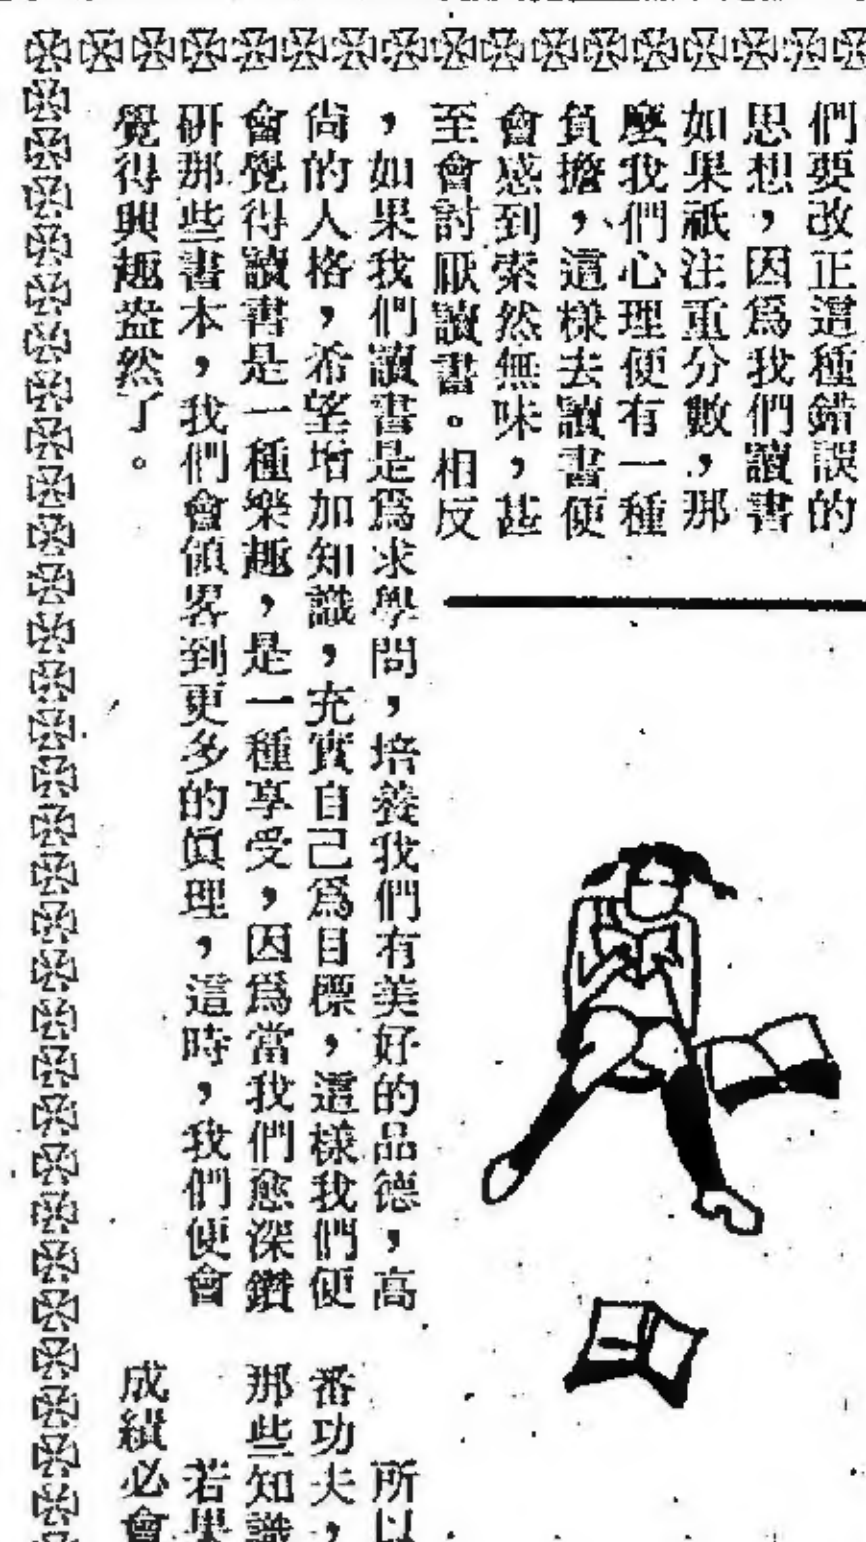 們要改正這種錯誤的
思想，因爲我們讀書
如果祇注重分數，那
麼我們心理便有一種
負擔，這樣去讀書便
會感到索然無味，甚
至會討厭讀書。相反
，如果我們讀書是爲求學問，培養我們有美好的品德，高
尙的人格，希望增加知識，充實自己爲目標，這樣我們便
會覺得讀書是一種樂趣，是一種享受，因爲當我們愈深鑽
研那些書本，我們會領畧到更多的眞理，這時，我們便會
覺得興趣盎然了。
所以
番功夫，
那些知識
若果
成績必會